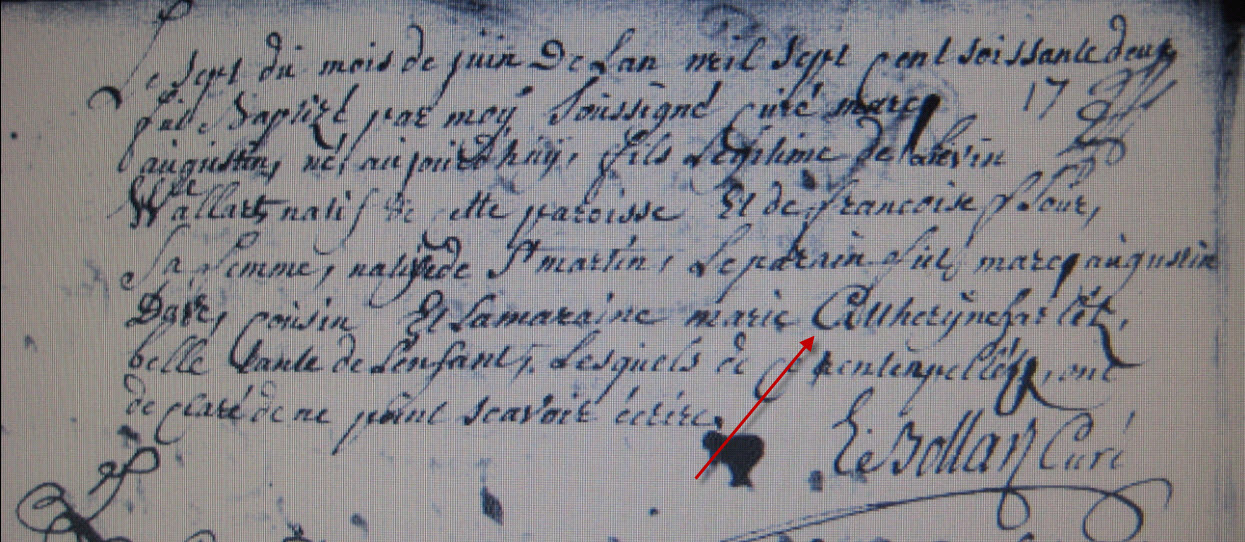 Le Sept du mois de juin De Lan mil Sept cent soissante deux
fut Baptizé par moy Soussigné curé marcq 17
augustin, né aujourdhuy, fils Légitime de Lievin
Wallart natif de cette paroisse Et de francoise
Sa femme, native de St martin, Le parain fut marcq augustin
cousin Et La maraine marie Catheryne
belle tante de L'enfant, Lesquels de ce ont
declaré de ne point scavoir écrire.
Curé